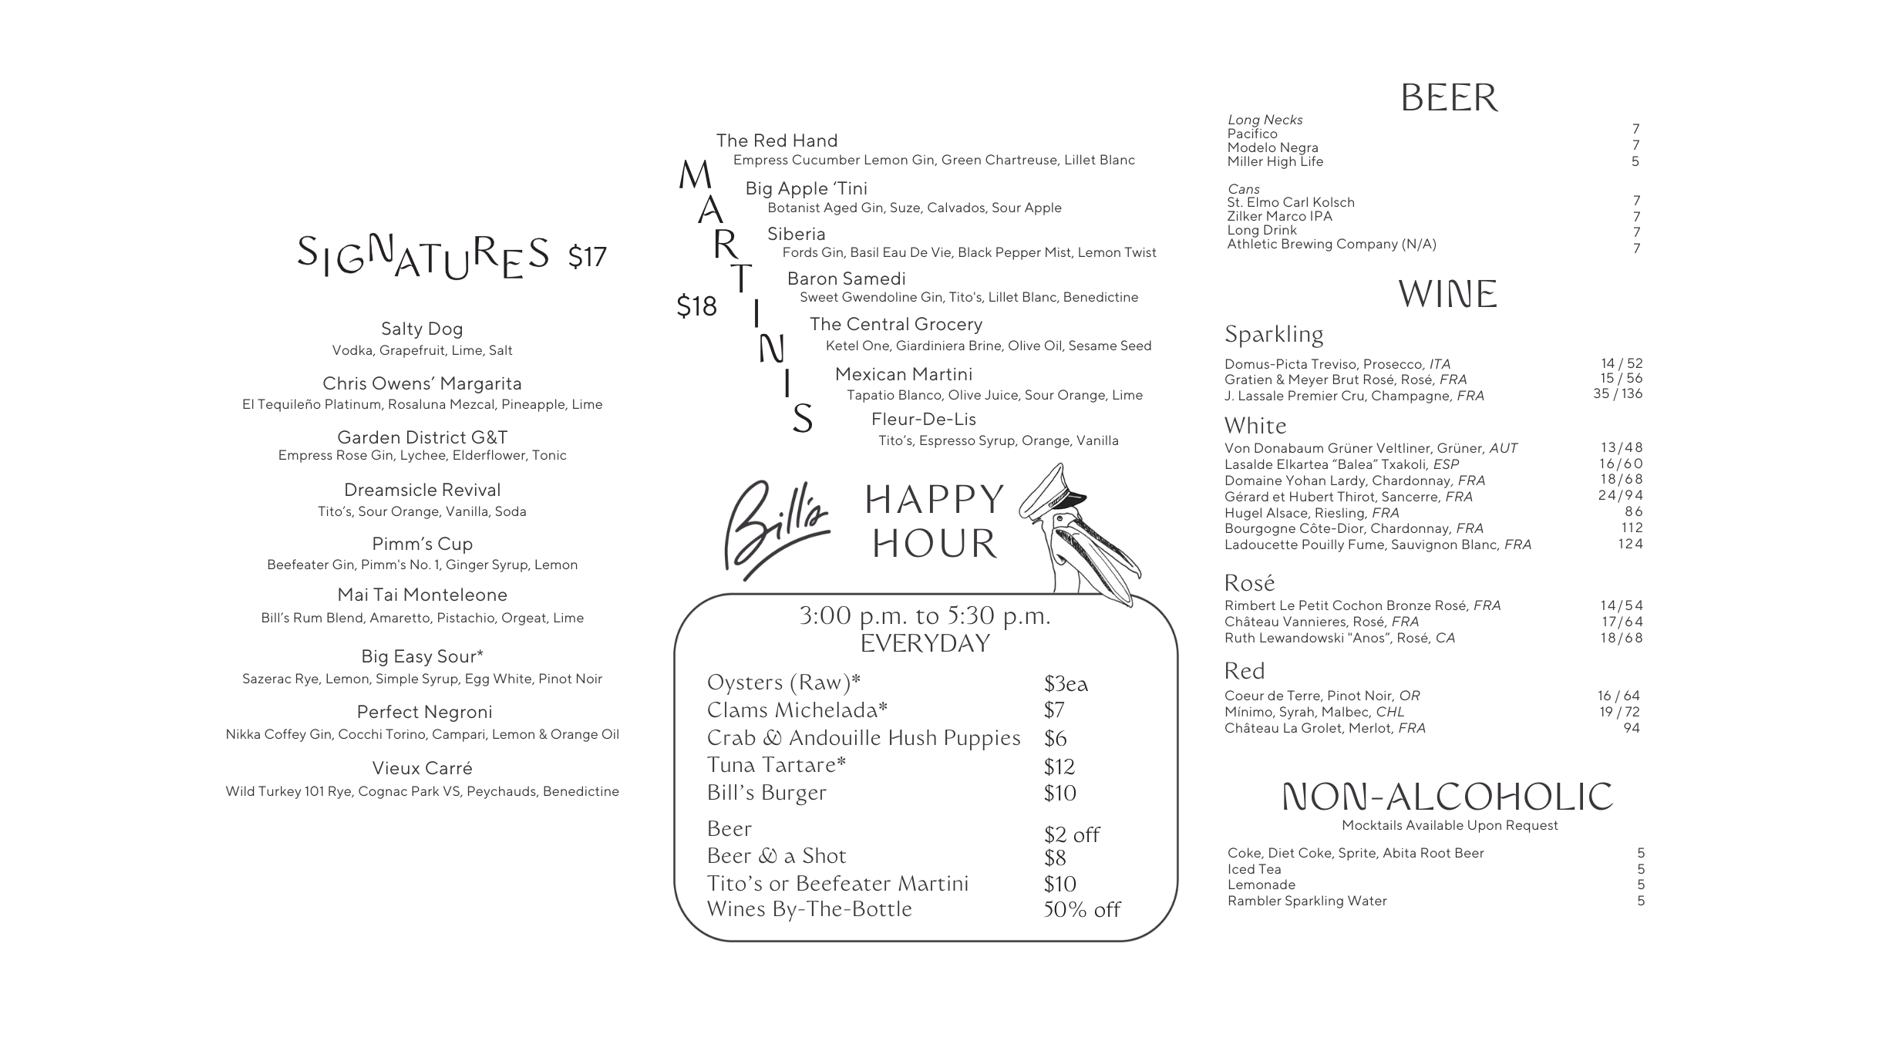 SIGNATURES $17
Salty Dog
Vodka, Grapefruit, Lime, Salt
Chris Owens’ Margarita
El Tequileño Platinum, Rosaluna Mezcal, Pineapple, Lime
Garden District G&T
Empress Rose Gin, Lychee, Elderflower, Tonic
Dreamsicle Revival
Tito’s, Sour Orange, Vanilla, Soda
Pimm’s Cup
Beefeater Gin, Pimm's No. 1, Ginger Syrup, Lemon
Mai Tai Monteleone
Bill’s Rum Blend, Amaretto, Pistachio, Orgeat, Lime
Big Easy Sour*
Sazerac Rye, Lemon, Simple Syrup, Egg White, Pinot Noir
Perfect Negroni
Nikka Coffey Gin, Cocchi Torino, Campari, Lemon & Orange Oil
Vieux Carré
Wild Turkey 101 Rye, Cognac Park VS, Peychauds, Benedictine
MARTINIS
$18
The Red Hand
Empress Cucumber Lemon Gin, Green Chartreuse, Lillet Blanc
Big Apple ‘Tini
Botanist Aged Gin, Suze, Calvados, Sour Apple
Siberia
Fords Gin, Basil Eau De Vie, Black Pepper Mist, Lemon Twist
Baron Samedi
Sweet Gwendoline Gin, Tito's, Lillet Blanc, Benedictine
The Central Grocery
Ketel One, Giardiniera Brine, Olive Oil, Sesame Seed
Mexican Martini
Tapatio Blanco, Olive Juice, Sour Orange, Lime
Fleur-De-Lis
Tito’s, Espresso Syrup, Orange, Vanilla
Bill's
HAPPY
HOUR
3:00 p.m. to 5:30 p.m.
EVERYDAY
Oysters (Raw)* $3ea
Clams Michelada* $7
Crab & Andouille Hush Puppies $6
Tuna Tartare* $12
Bill’s Burger $10
Beer $2 off
Beer & a Shot $8
Tito’s or Beefeater Martini $10
Wines By-The-Bottle 50% off
BEER
Long Necks
Pacifico 7
Modelo Negra 7
Miller High Life 5
Cans
St. Elmo Carl Kolsch 7
Zilker Marco IPA 7
Long Drink 7
Athletic Brewing Company (N/A) 7
WINE
Sparkling
Domus-Picta Treviso, Prosecco, ITA 14 / 52
Gratien & Meyer Brut Rosé, Rosé, FRA 15 / 56
J. Lassale Premier Cru, Champagne, FRA 35 / 136
White
Von Donabaum Grüner Veltliner, Grüner, AUT 13/48
Lasalde Elkartea “Balea” Txakoli, ESP 16/60
Domaine Yohan Lardy, Chardonnay, FRA 18/68
Gérard et Hubert Thirot, Sancerre, FRA 24/94
Hugel Alsace, Riesling, FRA 86
Bourgogne Côte-Dior, Chardonnay, FRA 112
Ladoucette Pouilly Fume, Sauvignon Blanc, FRA 124
Rosé
Rimbert Le Petit Cochon Bronze Rosé, FRA 14/54
Château Vannieres, Rosé, FRA 17/64
Ruth Lewandowski "Anos”, Rosé, CA 18/68
Red
Coeur de Terre, Pinot Noir, OR 16 / 64
Mínimo, Syrah, Malbec, CHL 19 / 72
Château La Grolet, Merlot, FRA 94
NON-ALCOHOLIC
Mocktails Available Upon Request
Coke, Diet Coke, Sprite, Abita Root Beer 5
Iced Tea 5
Lemonade 5
Rambler Sparkling Water 5